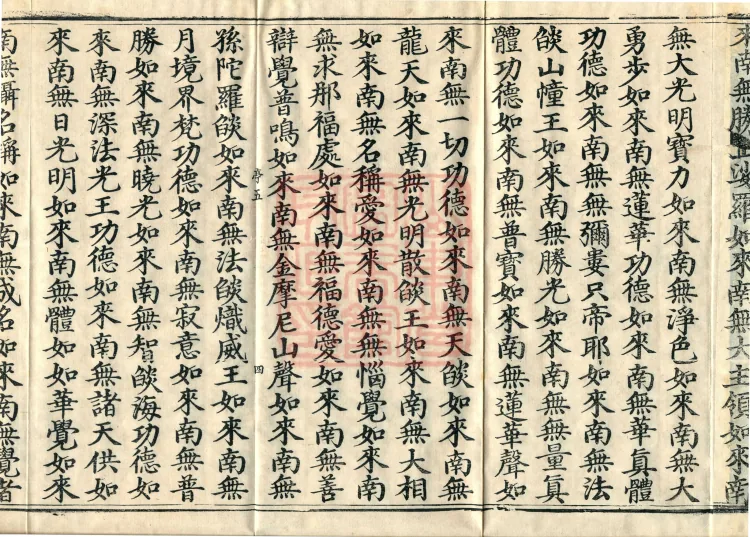 來南無勝 羅如來南無大主領如來南
無大光明寶力如來南無淨色如來南無大
勇步如來南無蓮華功德如來南無華眞體
功德如來南無無彌婁只帝耶如來南無法
燄山幢王如來南無勝光如來南無無量眞
體功德如來南無普寶如來南無蓮華聲如
來南無一切功德如來南無天燄如來南無
龍天如來南無光明散燄王如來南無大相
如來南無名稱愛如來南無無惱覺如來南
無求那福處如來南無福德愛如來南無善
辯覺普鳴如來南無金摩尼山聲如來南無
亭五
四
孫陀羅燄如來南無法燄熾威王如來南無
月境界梵功德如來南無寂意如來南無普
勝如來南無曉光如來南無智燄海功德如
來南無深法光王功德如來南無諸天供如
來南無日光明如來南無體如如華覺如來
南無 名稱如來南無成名如來南無覺者